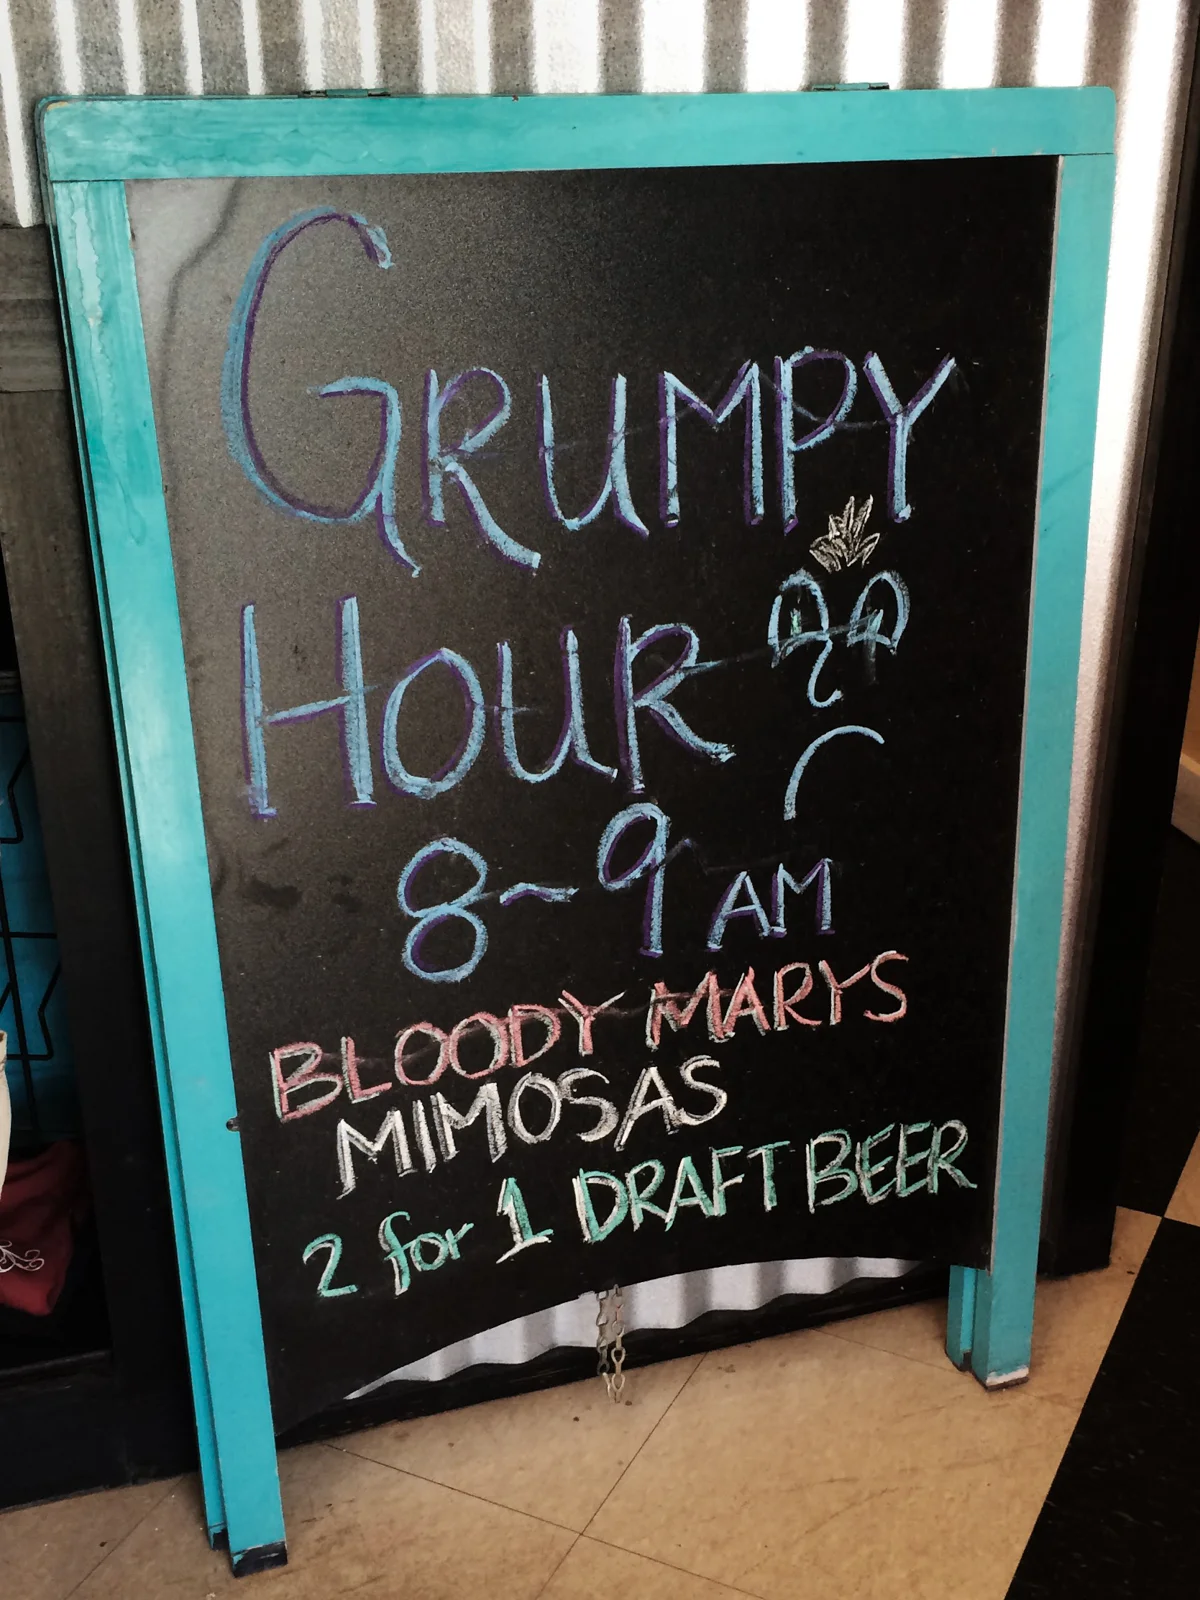 GRUMPY
HOUR
8~9 AM
BLOODY MARYS
MIMOSAS
2 for 1 DRAFT BEER